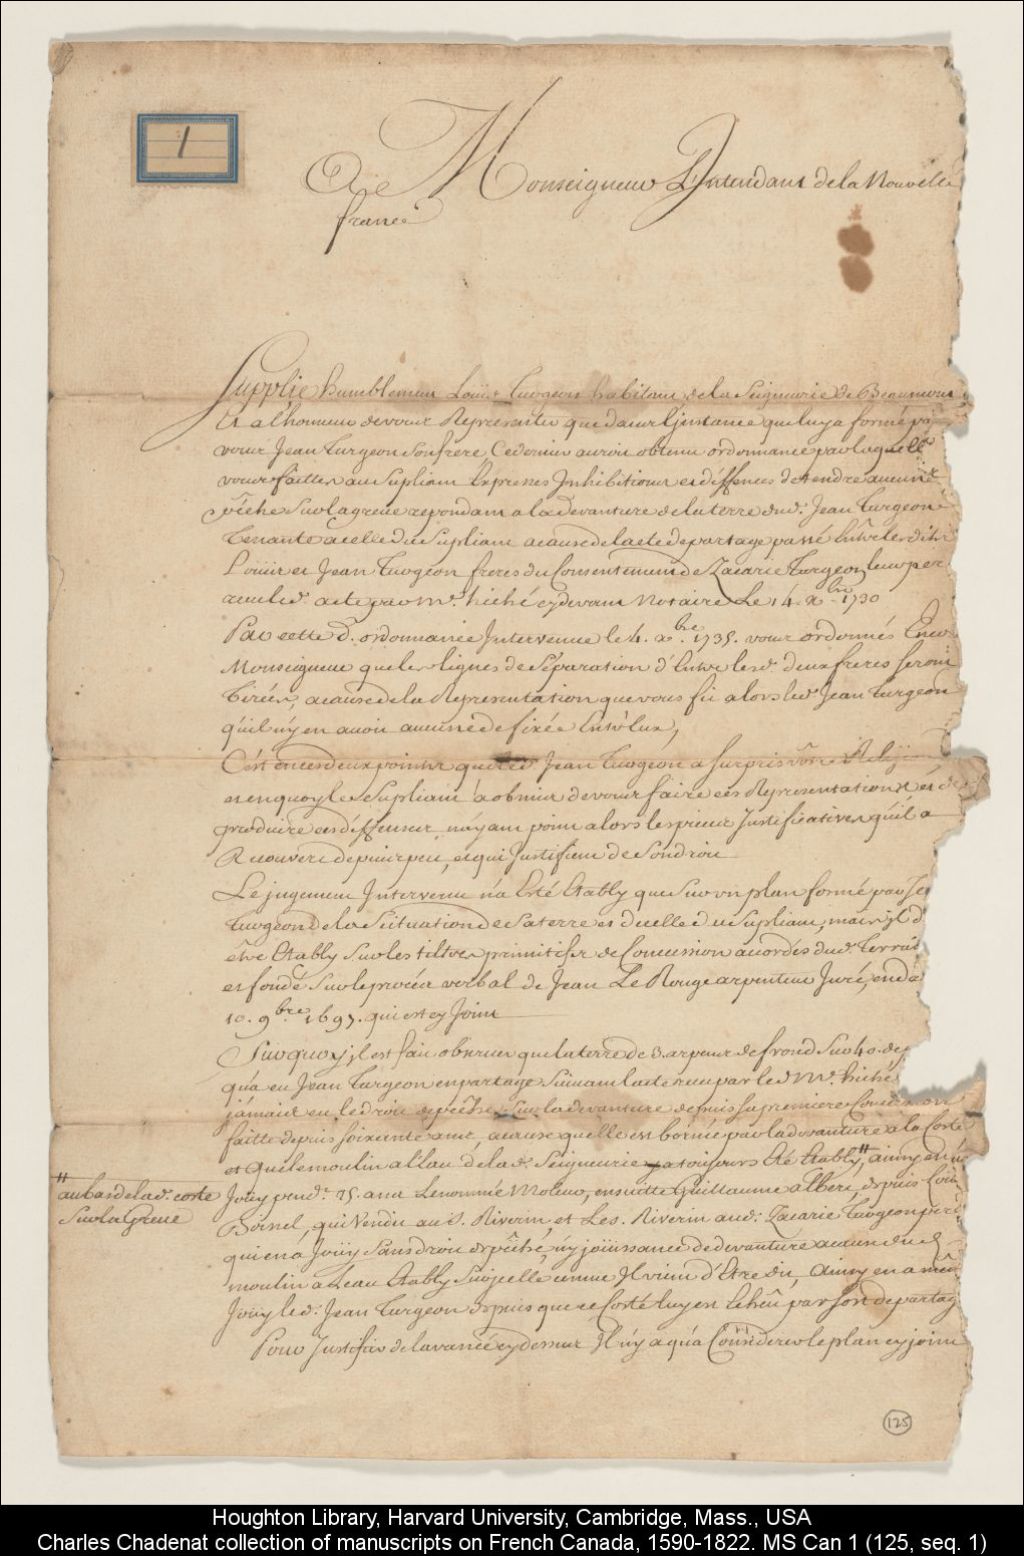 1
A Monseigneur L'Intendant de la Nouvelle
france
Supplie humblement Loüis Turgeon habitant de la Seigneurie de Beaumont
Et a l'honneur de vous Representer que dans l'Instance que luy a formé
vous Jean Turgeon Son frere, Ce dernier auroit obtenu ordonnance par laquelle
vous faittes au Supliant Expresses Inhibitions et déffences de tendre aucune
pêche Sur la greve repondant a la devanture de la terre dud. Jean Turgeon
Tenante a celle du Supliant acause de l'acte de partage passé Entre lesdits
Loüis et Jean Turgeon freres du Consentement de Zacarie Turgeon leur pere
acte par Me. hiché cy devant Notaire Le 14. xbre 1730
Par cette d. ordonnance Intervenue le 4. xbre. 1735. vous ordonnés Encore
Monseigneur que les lignes de Séparation d'Entre lesd. deux freres Seront
Tirées, acause de la Representation que vous fit alors led Jean Turgeon
qu'il n'y en avoit aucune de fixée Entr'Eux,
C'est en ces deux points que led Jean Turgeon a Surpris vôtre Religion
et en quoy le Supliant a obmis de vous faire ces Representations et de
produire ces déffenses, n'ayant point alors les pieces Justificatives qu'il a
Recouvert depuis peu, et qui Justifient de Son droit
Le jugement Intervenu n'a Eté Etably que Sur un plan formé par
Turgeon de la Scituation de Sa terre et d'icelle du Supliant, mais il
être Etably Sur les tiltres primitifs de Concession acordés dud. Terrain
et fondé Sur le procés verbal de Jean Le Rouge arpenteur Juré, en
10. 9bre. 1697. qui est cy Joint
Surquoy, il est fait observer que la terre de 3. arpens de frond Sur 40. de
qu'a eu Jean Turgeon en partage Suivant l'acte reçu par led Me. hiché,
jamais eu le droit de pêche Sur la devanture depuis Sa premiere Concession
faitte depuis Soixante ans, acause quelle est bornée par la devanture a la Coste
et que le moulin a l'Eau de lad. Seigneurie y a toujours Eté Etably, ainsy en
au bas de lad. coste
Sur la Greve
Joüy pend. 25. ans Le nommé Moleur, ensuitte Guillaume albert, depuis
Boinel, qui Vendit au S. Riverin, et Le S. Riverin aud. Zacarie Turgeon pere
qui en a Joüy Sans droit de pêche, n'y joüissance de devanture acause du d.
moulin a Leau Etably Sur jcelle comme Il vient d'Etre dit, Ainsy en a même
Joüy led. Jean Turgeon depuis que ce Costé luy est Echeû par Son partage
Pour Justifier de l'avancé cy dessus Il n'y a qu'a Considerer le plan cy joint
125
Houghton Library, Harvard University, Cambridge, Mass., USA
Charles Chadenat collection of manuscripts on French Canada, 1590-1822. MS Can 1 (125, seq. 1)